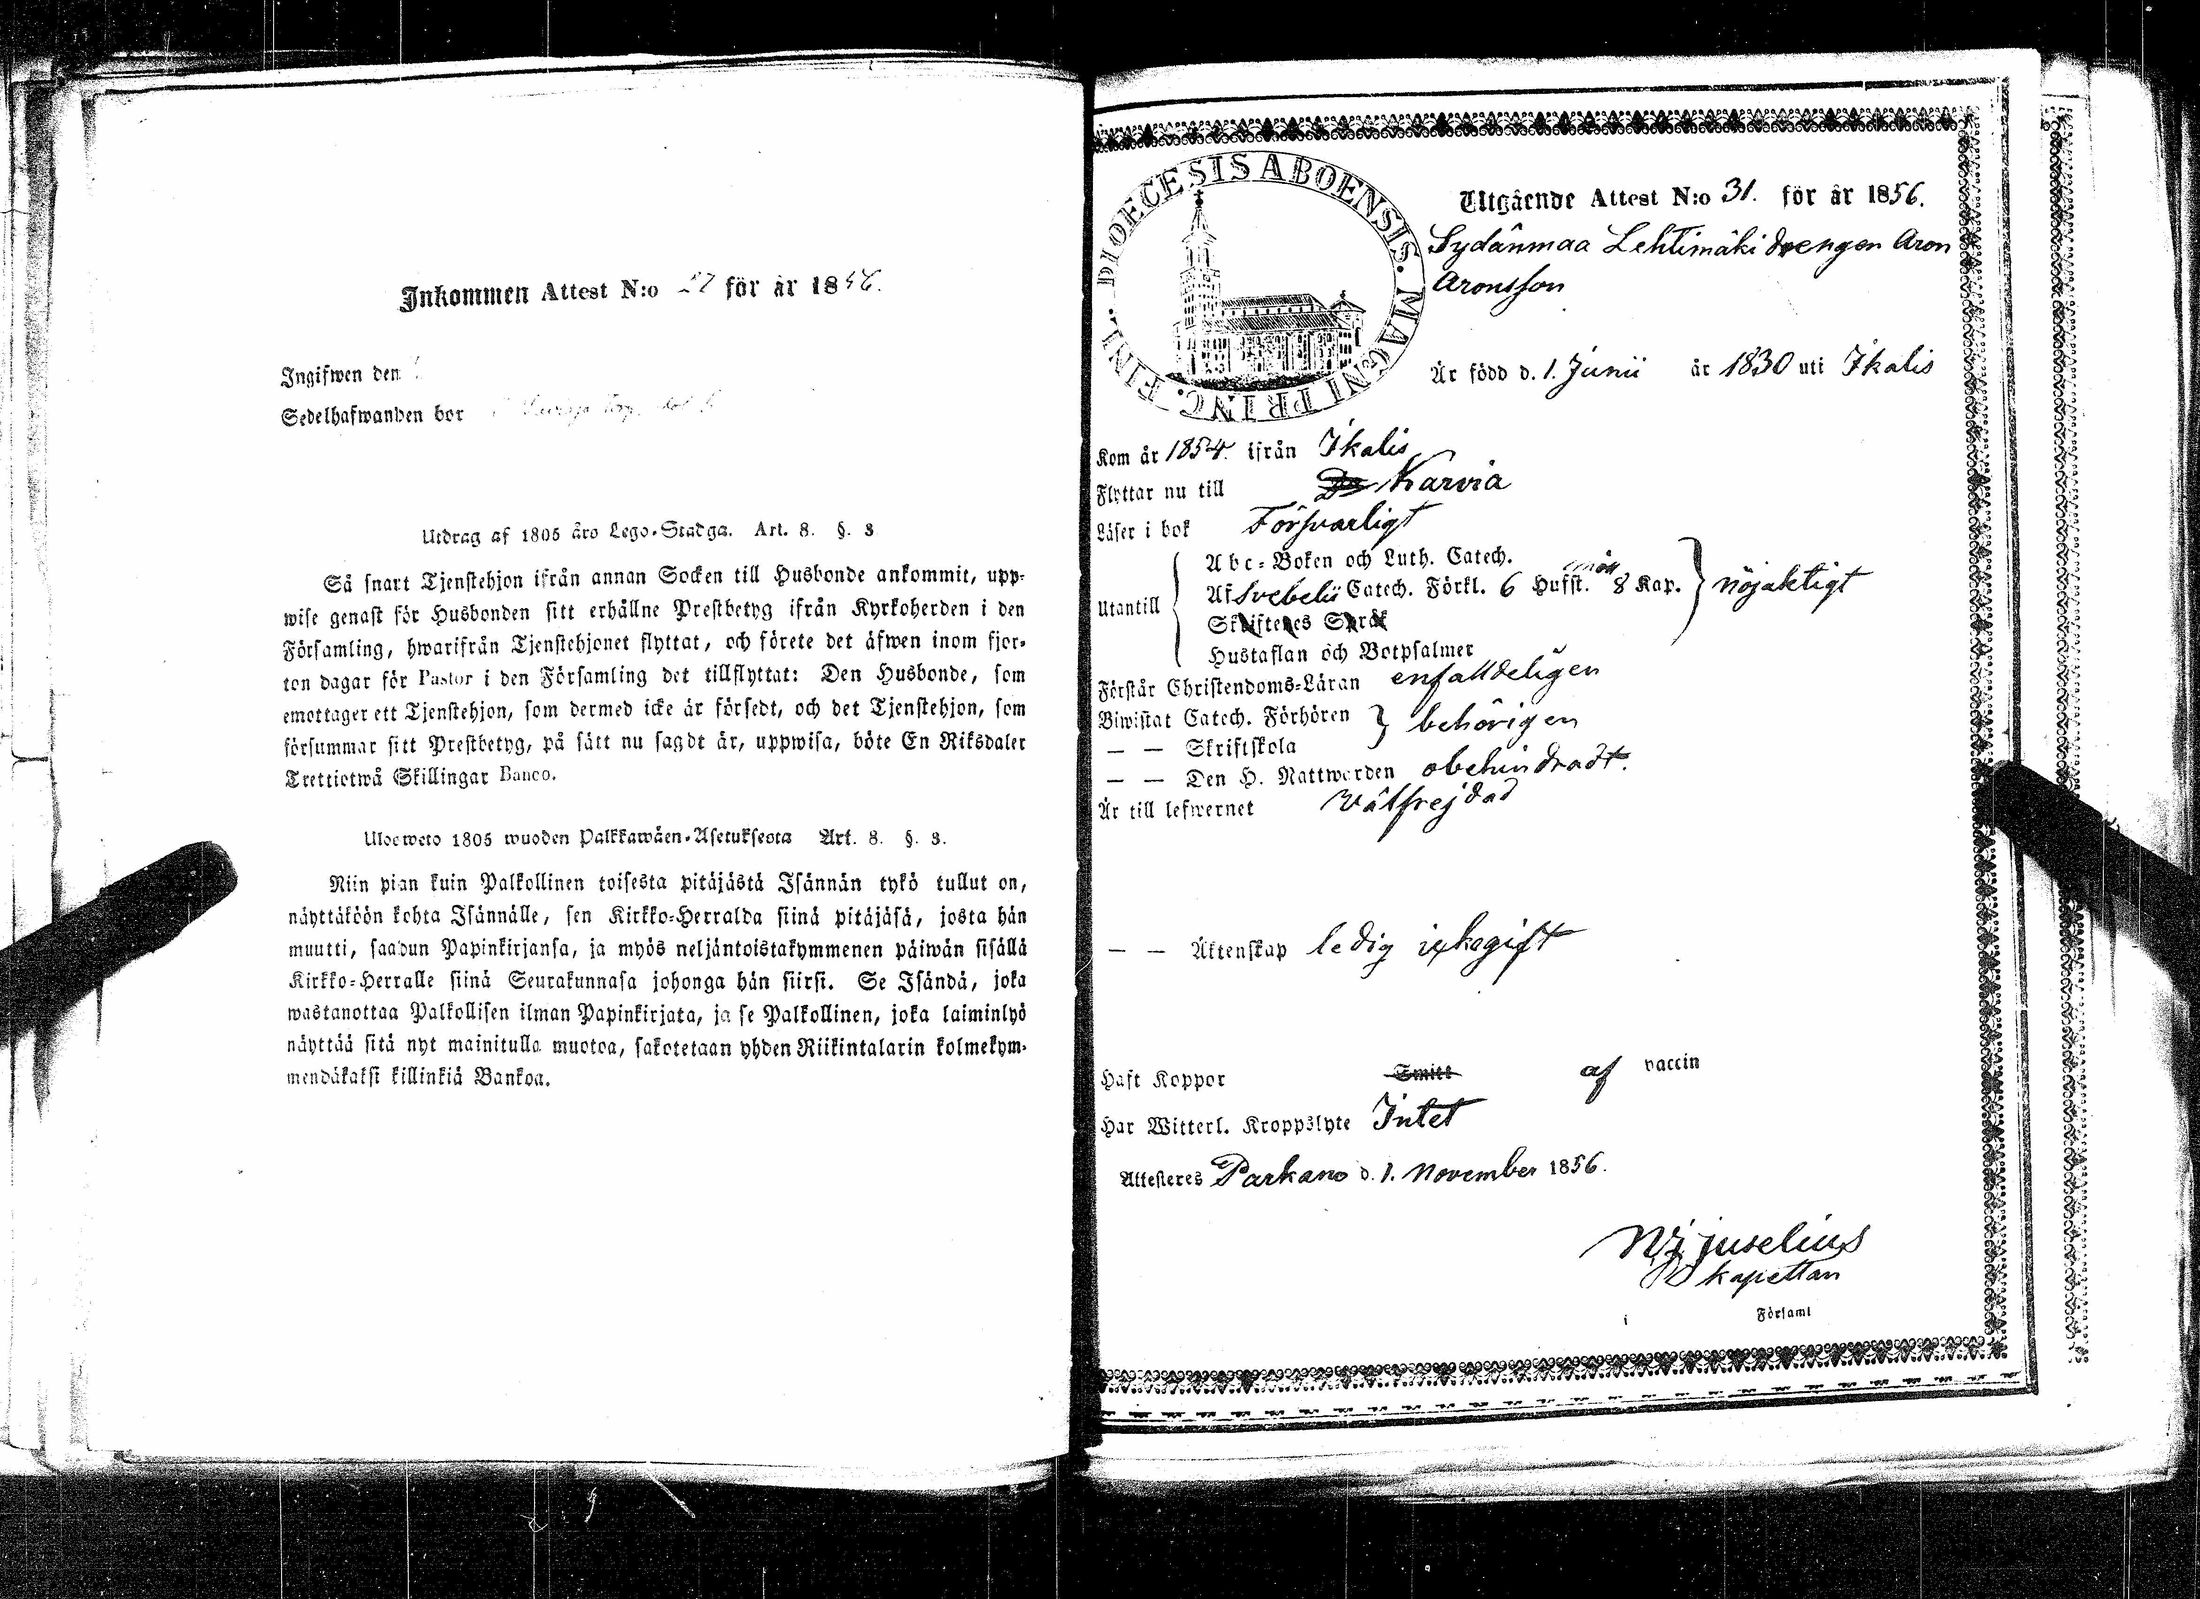 Inkommen Attest N:o 27 för år 1856.
Ingifwen den
Sedelhafwanden bor
Utdrag af 1805 års Lego-Stadga. Art. 8. §. 3
Så snart Tjenstehjon ifrån annan Socken till Husbonde ankommit, upp-
wise genast för Husbonden sitt erhållne Prestbetyg ifrån Kyrkoherden i den
Församling, hwarifrån Tjenstehjonet flyttat, och förete det äfwen inom fjor-
ton dagar för Pastor i den Församling det tillflyttat: Den Husbonde, som
emottager ett Tjenstehjon, som dermed icke är försedt, och det Tjenstehjon, som
försummar sitt Prestbetyg, på sätt nu sagdt är, uppwisa, böte En Riksdaler
Trettiotwå Skillingar Banco.
Ulosweto 1805 wuoden Palkkawäen-Asetuksesta Art. 8. §. 3.
Niin pian kuin Palkollinen toisesta pitäjästä Isännän tykö tullut on,
näyttäköön kohta Isännälle, sen Kirkko-Herralda siinä pitäjäsä, josta hän
muutti, saadun Papinkirjansa, ja myös neljäntoistakymmenen päiwän sisällä
Kirkko-Herralle siinä Seurakunnasa johonga hän siirsi. Se Isändä, joka
wastanottaa Palkollisen ilman Papinkirjata, ja se Palkollinen, joka laiminlyö
näyttää sitä nyt mainitulla muotoa, sakotetaan yhden Riikintalarin kolmekym-
mendäkaksi killinkiä Bankoa.
DIOECESIS ABOENSIS. MAGNI PRINC. FINL.
Utgående Attest N:o 31. för år 1856.
Sydänmaa Lehtimäki drengen Aron
Aronsson
Är född d. 1. Junii år 1830 uti Ikalis
Kom år 1854. ifrån Ikalis
Flyttar nu till Karvia
Läser i bok Försvarligt
Utantill
Abc-Boken och Luth. Catech.
Af Svebelii Catech. Förkl. 6 Hufst. 8 Kap. nöjaktigt
Skriftenes Språk
Hustaflan och Botpsalmer
Förstår Christendoms-Läran enfalldeligen
Biwistat Catech. Förhören behörigen
— — Skriftskola
— — Den H. Nattwarden obehindradt.
Är till lefwernet Välfrejdad
— — Äktenskap ledig ickegift
Haft Koppor Smitt af vaccin
Har Witterl. Kroppslyte Intet
Attesteres Parkano d. 1. November 1856.
Juselius
kapellan
i Församl